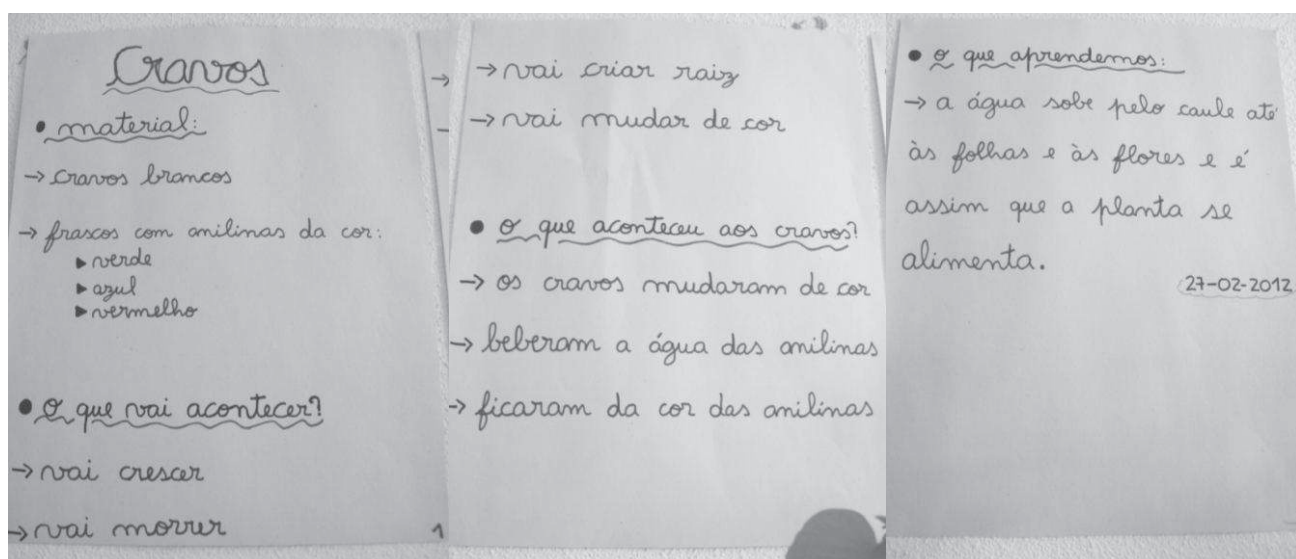 Cravos
• material:
→ cravos brancos
→ frascos com anilinas da cor:
▶ verde
▶ azul
▶ vermelho
• O que vai acontecer?
→ vai crescer
→ vai morrer
1
→ vai criar raiz
→ vai mudar de cor
• O que aconteceu aos cravos?
→ os cravos mudaram de cor
→ beberam a água das anilinas
→ ficaram da cor das anilinas
• O que aprendemos:
→ a água sobe pelo caule até
às folhas e às flores e é
assim que a planta se
alimenta.
27-02-2012